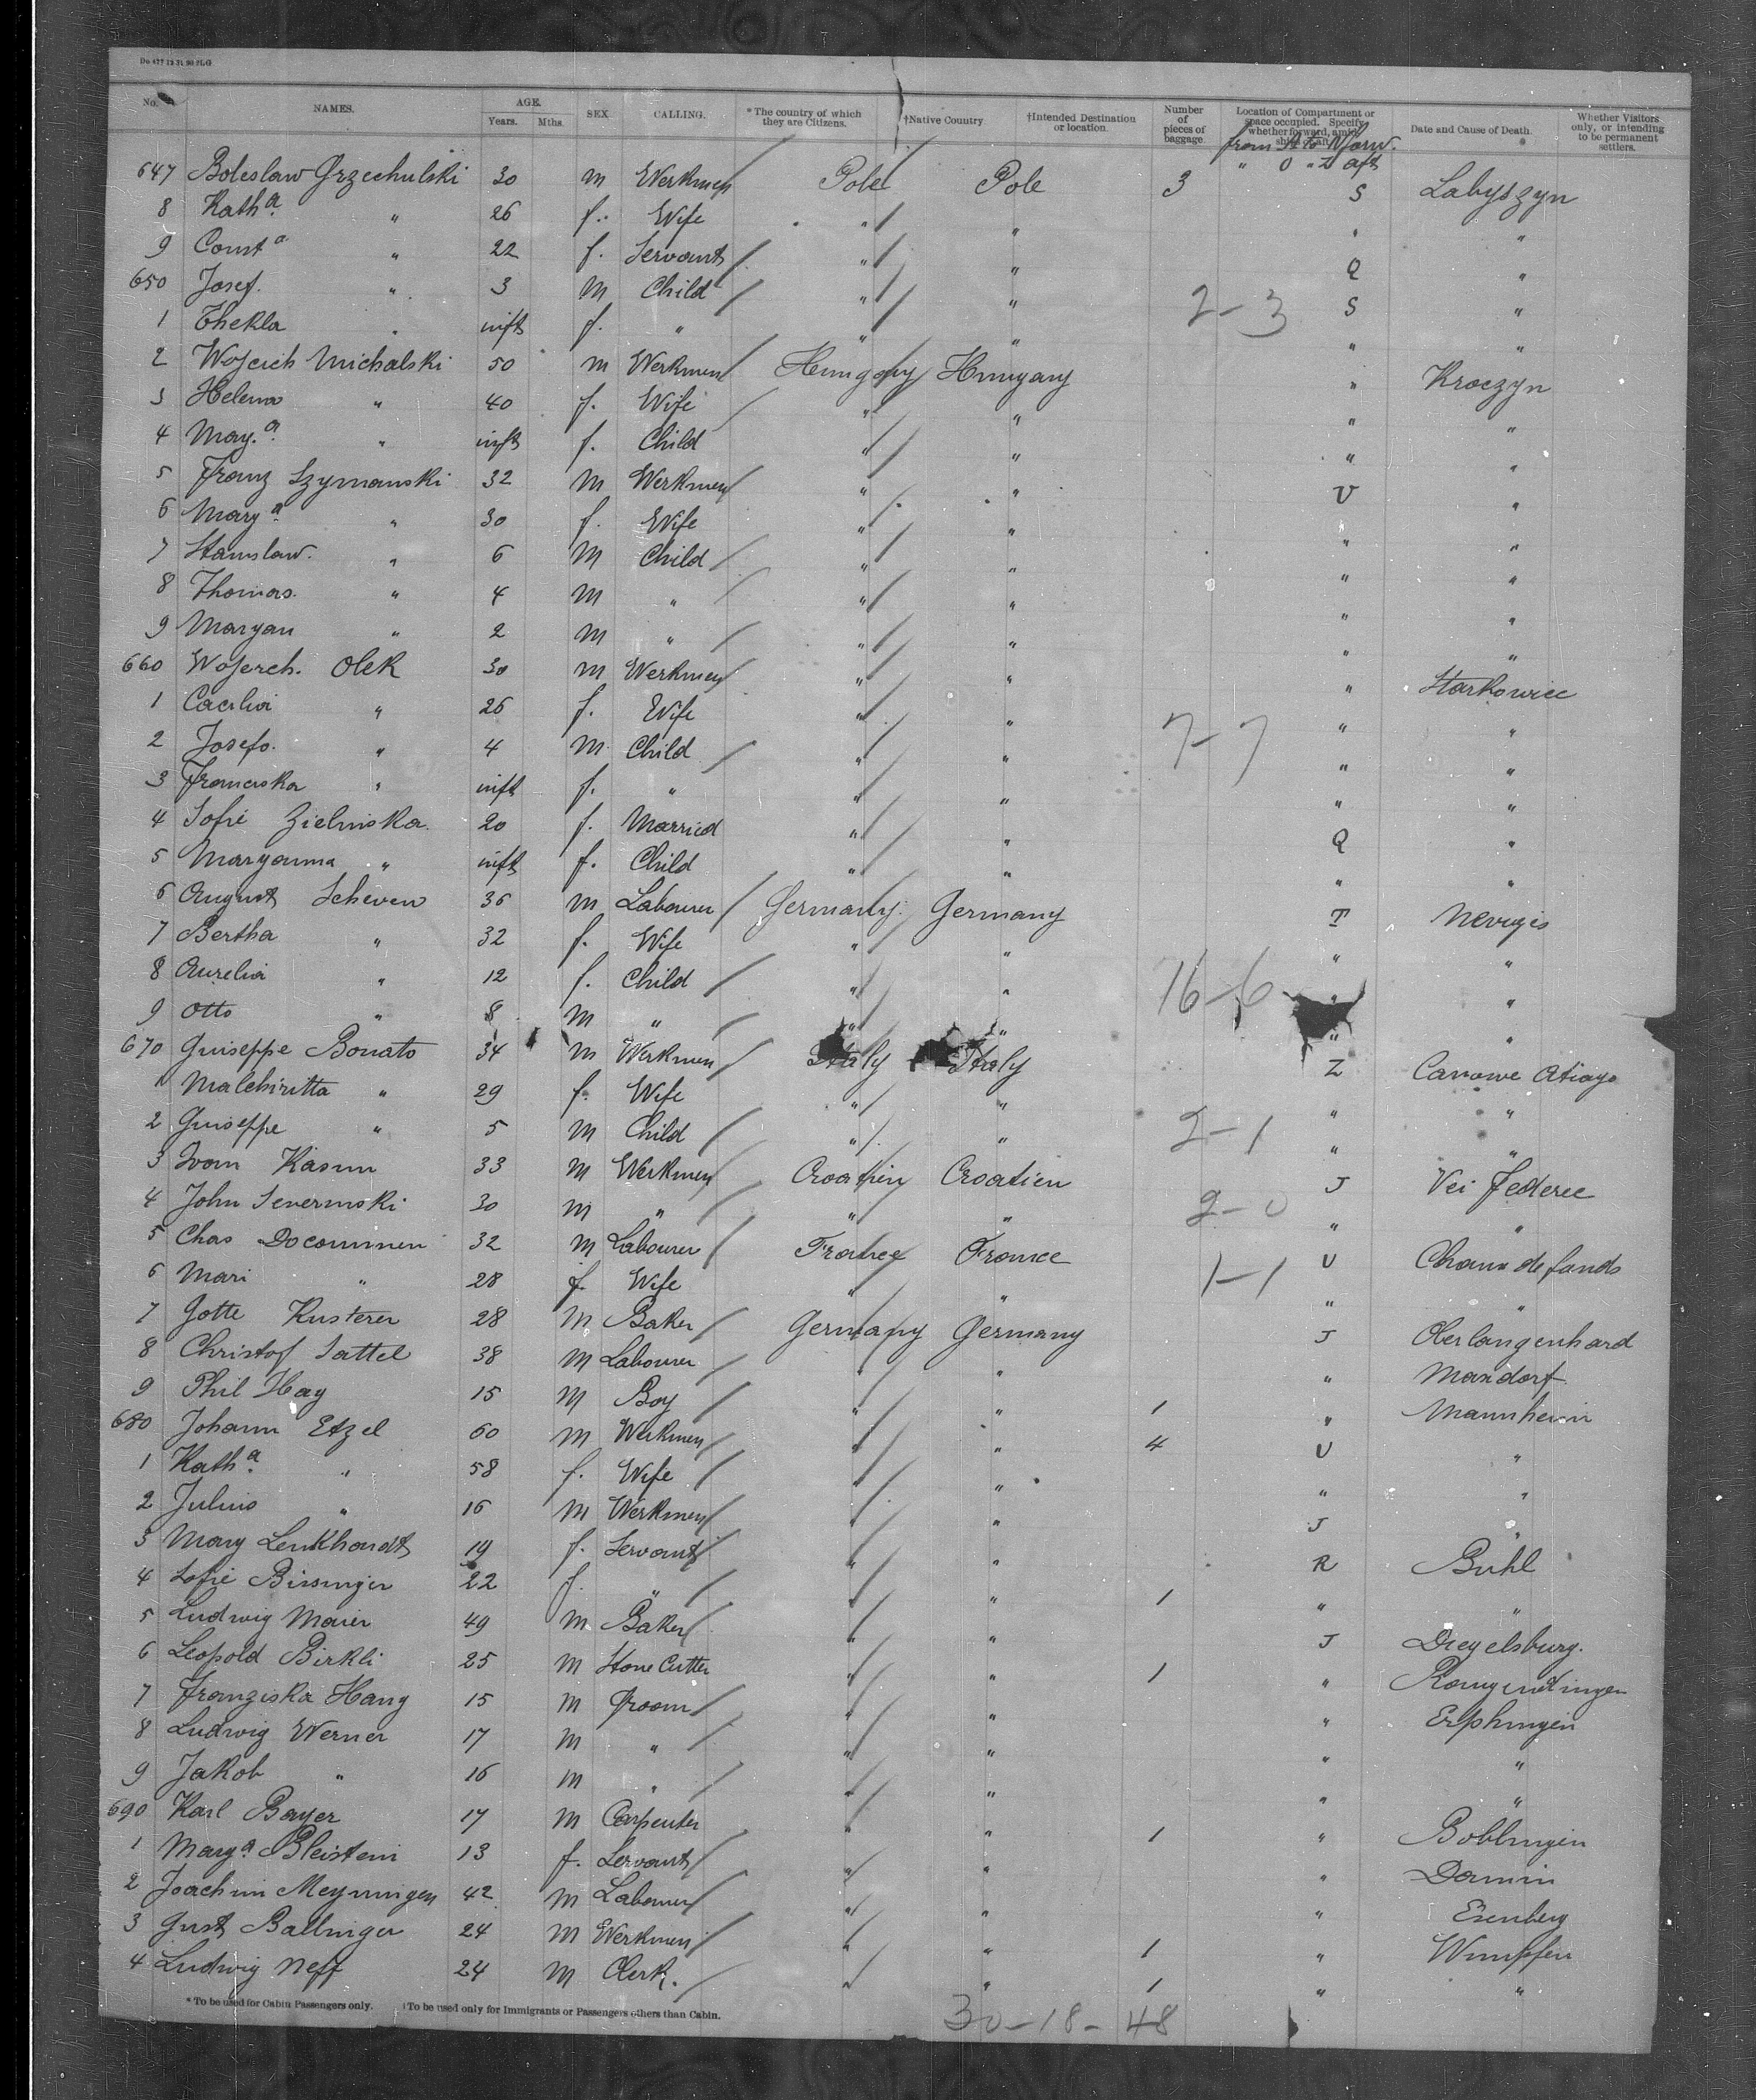 No. NAMES. AGE. Years. Mths. SEX CALLING. * The country of which they are Citizens. †Native Country †Intended Destination or location. Number of pieces of baggage Location of Compartment or space occupied. Specify whether forward, Date and Cause of Death. Whether Visitors only, or intending to be permanent settlers.
from A to N forw.
" O " Z aft
647 Boleslaw Grzechulski 30 m Werkmen Pole Pole 3 S Labyszyn
8 Kath.a " 26 f. Wife " " " "
9 Const.a " 22 f. Servant " " Q "
650 Josef. " 3 m Child " " 2-3 S "
1 Thekla " inft f. " " " " "
2 Wojcich Michalski 50 m Werkmen Hungary Hungary " Kroczyn
3 Helena " 40 f. Wife " " " "
4 Mary.a " inft f. Child " " " "
5 Franz Szymanski 32 m Werkmen " " U "
6 Mary.a " 30 f. Wife " " " "
7 Stanislaw. " 6 m Child " " " "
8 Thomas. " 4 m " " " " "
9 Maryan " 2 m " " " " "
660 Wojerch. Olek 30 m Werkmen " " " Starkowiec
1 Caecilia " 26 f. Wife " " " "
2 Josefo. " 4 m Child " " 7-7 " "
3 Franciska " inft f. " " " " "
4 Sofie Zielinska 20 f. Married " " Q "
5 Maryanna " inft f. Child " " " "
6 August Scheven 36 m Labourer Germany Germany T Nevigis
7 Bertha " 32 f. Wife " " " "
8 Aurelia " 12 f. Child " " 16-6 " "
9 Otto " 8 m " " " " "
670 Guiseppe Bonato 34 m Werkmen Italy Italy Z Canowe Atiago
1 Malehiritta " 29 f. Wife " " " "
2 Guiseppe " 5 m Child " " 2-1 " "
3 Ivan Kasun 33 m Werkmen Croatien Croatien J Vei Federee
4 John Severinski 30 m " " " 2-0 " "
5 Chas Docommen 32 m Labourer France France U Chaux de fonds
6 Mari " 28 f. Wife " " 1-1 " "
7 Gotte Kusterer 28 m Baker Germany Germany J Oberlangenhard
8 Christof Sattel 38 m Labourer " " " Maxdorf
9 Phil Hay 15 m Boy " " 1 " Mannheim
680 Johann Etzel 60 m Werkmen " " 4 U "
1 Kath.a " 58 f. Wife " " " "
2 Julius " 16 m Werkmen " " J "
3 Mary Lenkhardt 19 f. Servant " " R Buhl
4 Sofie Bissinger 22 f. " " " 1 " "
5 Ludwig Maier 49 m Baker " " J Diegelsburg.
6 Leopold Birkli 25 m Stone Cutter " " 1 "
7 Franziska Hang 15 m Groom " " " Erphingen
8 Ludwig Werner 17 m " " " " "
9 Jakob " 16 m " " " " "
690 Karl Bayer 17 m Carpenter " " 1 " Boblingen
1 Mary.a Bleistein 13 f. Servant " " " Damin
2 Joachim Meyningen 42 m Labourer " " " Eisenberg
3 Gust Ballinger 24 m Werkmen " " 1 " Wimpfen
4 Ludwig Neff 24 m Clerk. " " 1 " "
* To be used for Cabin Passengers only. †To be used only for Immigrants or Passengers others than Cabin.
30-18-48